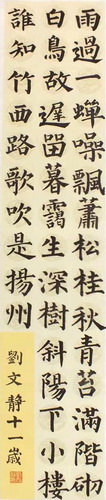 雨過一蟬噪飄蕭松桂秋青苔滿階砌
白鳥故遲留暮靄生深樹斜陽下小樓
誰知竹西路歌吹是揚州
劉文靜十一歲